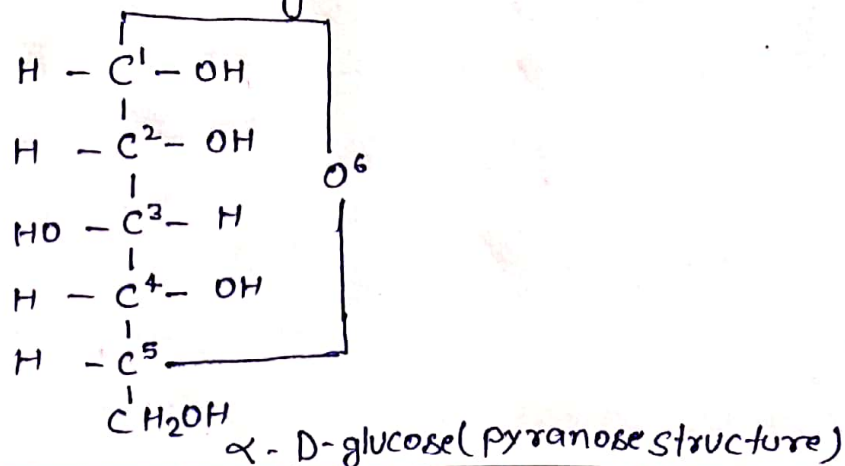 H - C¹ - OH
H - C² - OH
O⁶
HO - C³ - H
H - C⁴ - OH
H - C⁵
CH₂OH
α - D-glucose (pyranose structure)